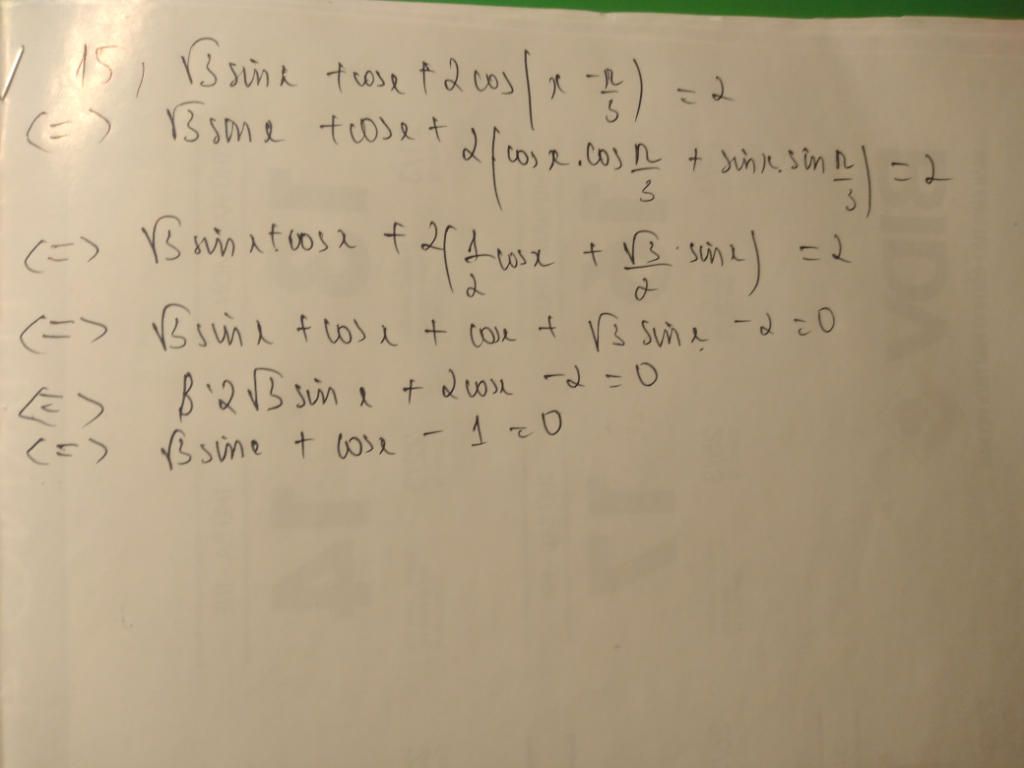 15, √3 sinx + cosx + 2cos(x - π/3) = 2
<=> √3 sinx + cosx + 2(cosx.cos π/3 + sinx.sin π/3) = 2
<=> √3 sinx + cosx + 2(1/2 cosx + √3/2 . sinx) = 2
<=> √3 sinx + cosx + cosx + √3 sinx - 2 = 0
<=> 2√3 sinx + 2cosx - 2 = 0
<=> √3 sinx + cosx - 1 = 0